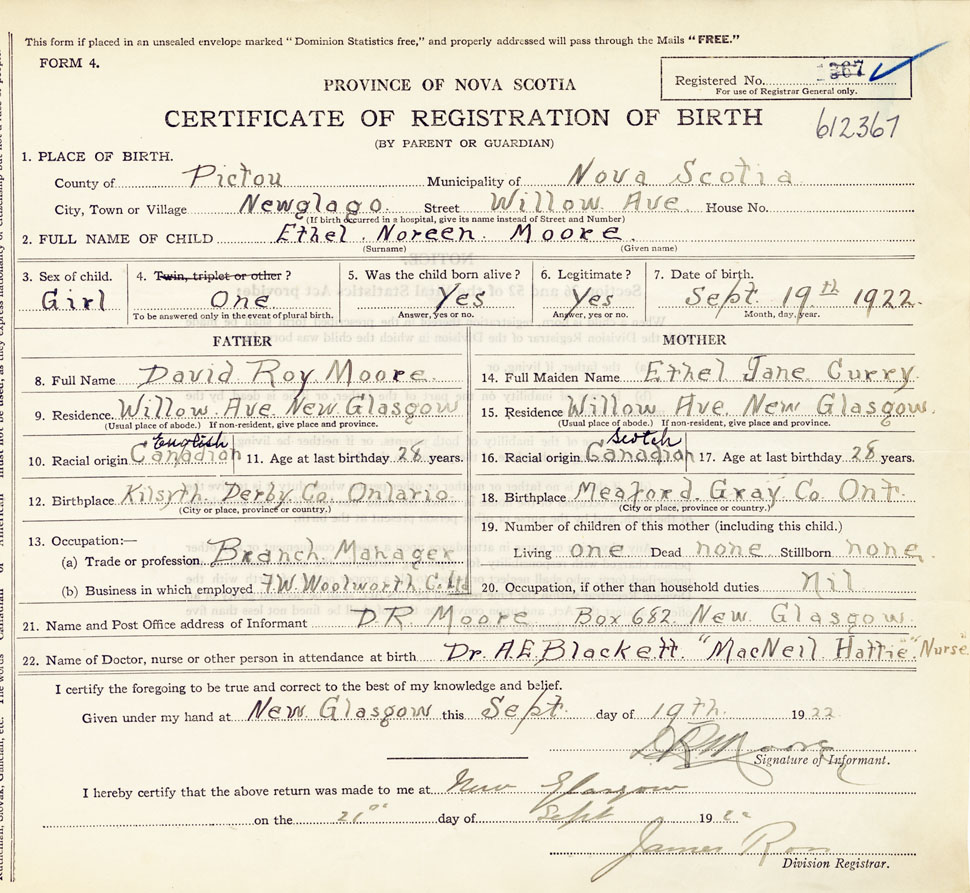 This form if placed in an unsealed envelope marked "Dominion Statistics free," and properly addressed will pass through the Mails "FREE."
FORM 4.
Registered No. 367
For use of Registrar General only.
PROVINCE OF NOVA SCOTIA
CERTIFICATE OF REGISTRATION OF BIRTH
612367
(BY PARENT OR GUARDIAN)
1. PLACE OF BIRTH.
County of Pictou Municipality of Nova Scotia
City, Town or Village Newglago. Street Willow Ave. House No.
(If birth occurred in a hospital, give its name instead of Street and Number)
2. FULL NAME OF CHILD Ethel Noreen Moore.
(Surname) (Given name)
3. Sex of child. 4. Twin, triplet or other? 5. Was the child born alive? 6. Legitimate? 7. Date of birth.
Girl One Yes Yes Sept. 19th 1922.
To be answered only in the event of plural birth. Answer, yes or no. Answer, yes or no. Month, day, year.
FATHER MOTHER
8. Full Name David Roy Moore 14. Full Maiden Name Ethel Jane Curry
9. Residence Willow Ave. New Glasgow 15. Residence Willow Ave. New Glasgow.
(Usual place of abode.) If non-resident, give place and province. (Usual place of abode.) If non-resident, give place and province.
English Scotch
10. Racial origin Canadian 11. Age at last birthday 28 years. 16. Racial origin Canadian 17. Age at last birthday 28 years.
12. Birthplace Kilsyth Derby Co. Ontario 18. Birthplace Meaford. Gray Co. Ont.
(City or place, province or country.) (City or place, province or country.)
19. Number of children of this mother (including this child.)
13. Occupation:—
(a) Trade or profession Branch Manager Living one Dead none Stillborn none.
(b) Business in which employed F.W. Woolworth Co. Ltd 20. Occupation, if other than household duties Nil
21. Name and Post Office address of Informant D.R. Moore Box 682. New Glasgow.
22. Name of Doctor, nurse or other person in attendance at birth Dr. A.E. Blackett. "MacNeil Hattie" Nurse"
I certify the foregoing to be true and correct to the best of my knowledge and belief.
Given under my hand at New Glasgow this Sept. day of 19th. 1922.
D R Moore
Signature of Informant.
I hereby certify that the above return was made to me at New Glasgow
on the 21st day of Sept 192
James Ross
Division Registrar.